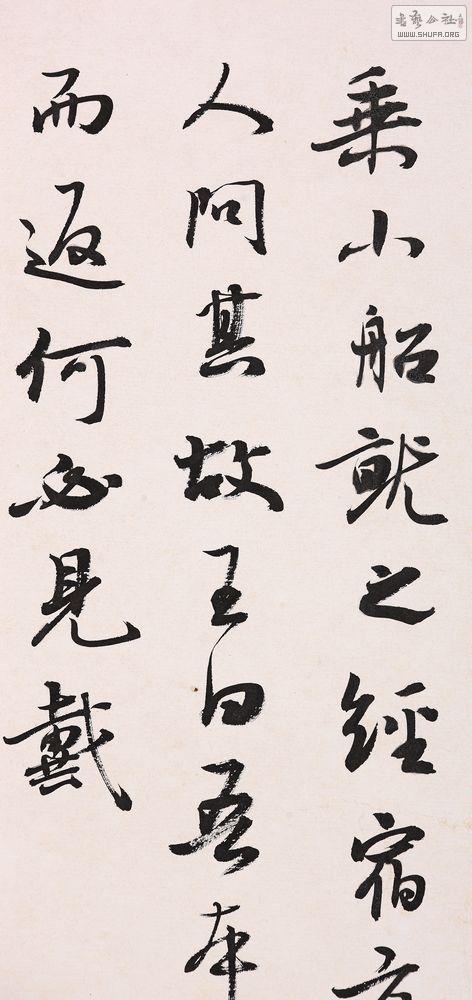 乘小船就之經宿方
人問其故王曰吾本
而返何必見戴
书艺公社
WWW.SHUFA.ORG